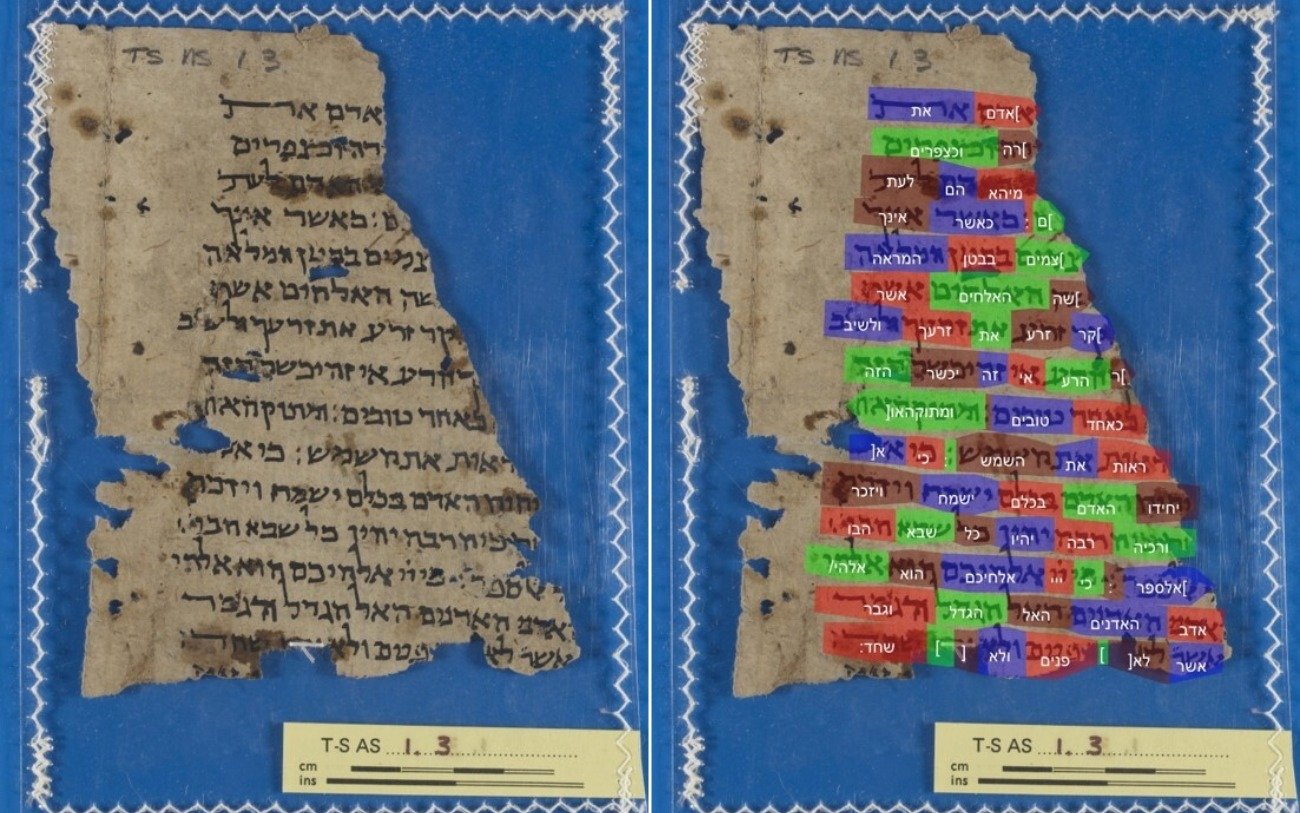 TS NS 1 3
אדם את
רה וכצפרים
האדם לעת
ם : כאשר אינך
צמים בבטן המלאה
שה האלהים אשר
קר זרע את זרעך
אי זה יכשר הזה
כאחד טובים : ומתוק האו
ראות את השמש : כי א
האדם בכלם ישמח ויזכר
הרבה יהיו כל שבא
כי ייי אלהיכם הוא אלהי
האדנים האל הגדל והגבר
אשר לא פנים ולא שחד
T-S AS 1. 3
cm
ins
TS NS 1 3
]אדם את
]רה וכצפרים
מיהא הם לעת
]ם : כאשר אינך
]צמים בבטן המראה
]שה האלחים אשר
]קר זרע את זרעך ולשיב
]ר הרע אי זה יכשר הזה
כאחד טובים ומתוקהאו[
ראות את השמש : כי א[
יחידו האדם בכלם ישמח ויזכר
ורכיה רבה יהיו כל שבא הבו
]אלספר : כי ייי אלחיכם הוא אלהי/
אדב האדנים האל הגדל וגבר
אשר לא[ ] פנים ולא [ ] שחד:
T-S AS 1. 3
cm
ins